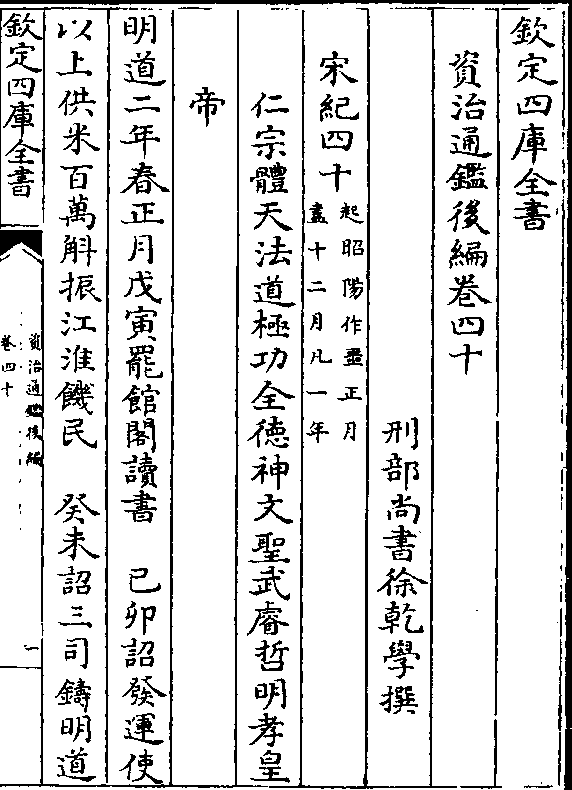 欽定四庫全書
資治通鑑後編卷四十
刑部尚書徐乾學撰
宋紀四十起昭陽作噩正月
盡十二月凡一年
仁宗體天法道極功全德神文聖武睿哲明孝皇
帝
明道二年春正月戊寅罷館閣讀書 己卯詔發運使
以上供米百萬斛振江淮饑民 癸未詔三司鑄明道
欽定四庫全書
資治通鑑後編
卷四十
一